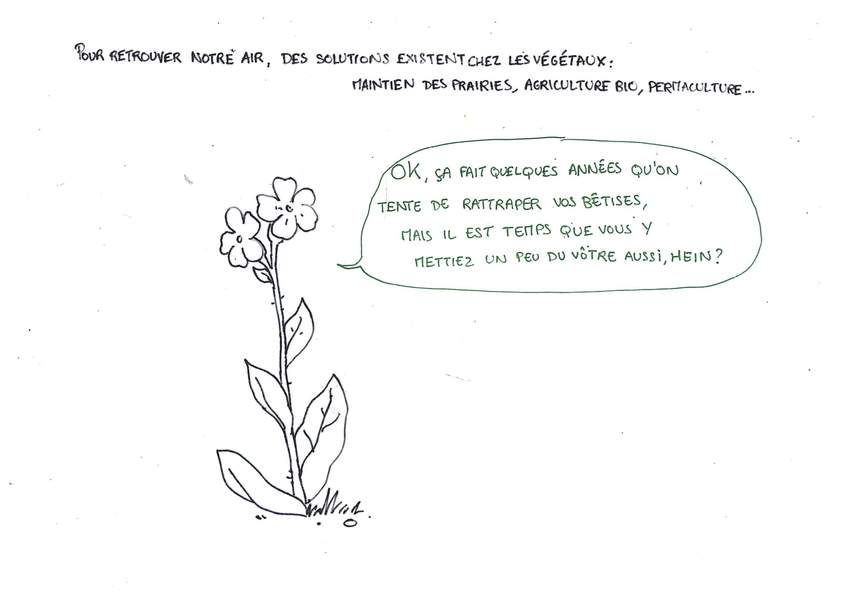 POUR RETROUVER NOTRE AIR, DES SOLUTIONS EXISTENT CHEZ LES VÉGÉTAUX :
MAINTIEN DES PRAIRIES, AGRICULTURE BIO, PERMACULTURE...
OK, ÇA FAIT QUELQUES ANNÉES QU'ON
TENTE DE RATTRAPER VOS BÊTISES,
MAIS IL EST TEMPS QUE VOUS Y
METTIEZ UN PEU DU VÔTRE AUSSI, HEIN ?